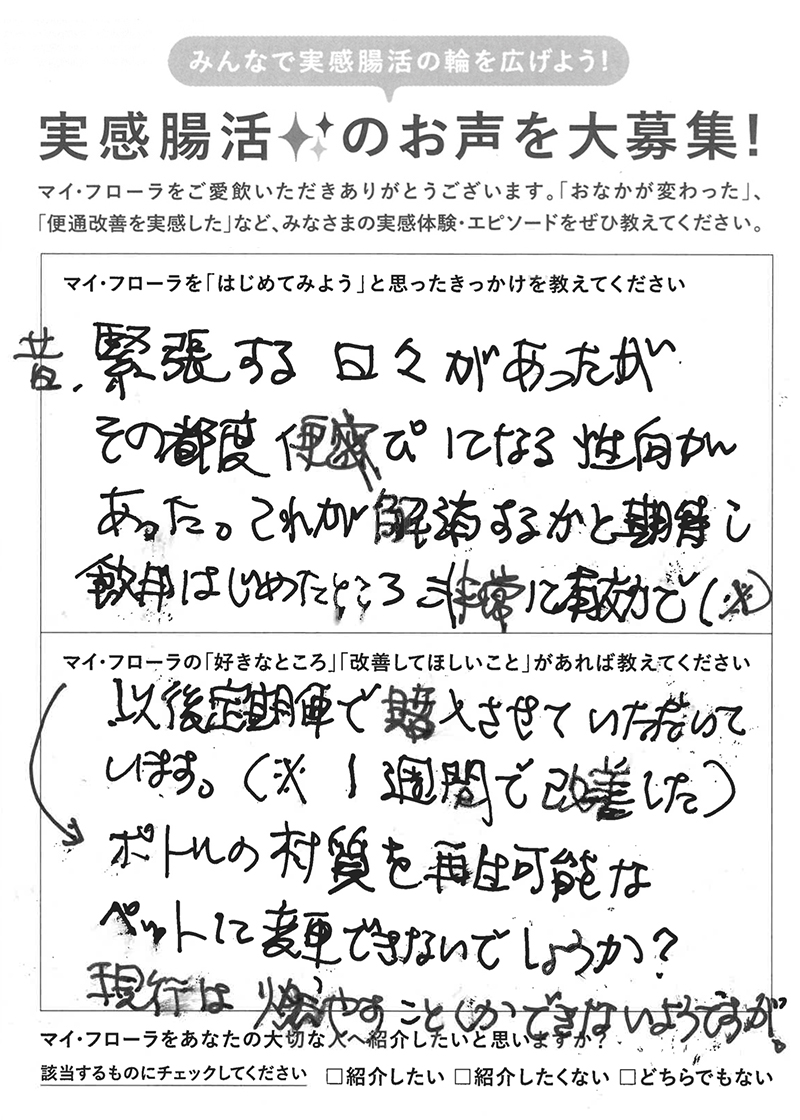 みんなで実感腸活の輪を広げよう!
実感腸活のお声を大募集!
マイ・フローラをご愛飲いただきありがとうございます。「おなかが変わった」、
「便通改善を実感した」など、みなさまの実感体験・エピソードをぜひ教えてください。
マイ・フローラを「はじめてみよう」と思ったきっかけを教えてください
昔、緊張する日々があったが
その都度便密ぴになる性向がん
あった。これが解消するかと期待し
飲用はじめたところ非常に有効で(※)
マイ・フローラの「好きなところ」「改善してほしいこと」があれば教えてください
以後定期便で購入させていただいて
います。(※1週間で改善した)
ボトルの材質を再生可能な
ペットに変更できないでしょうか?
現行は燃やすことしかできないようですが。
マイ・フローラをあなたの大切な人へ紹介したいと思いますか?
該当するものにチェックしてください □紹介したい □紹介したくない □どちらでもない